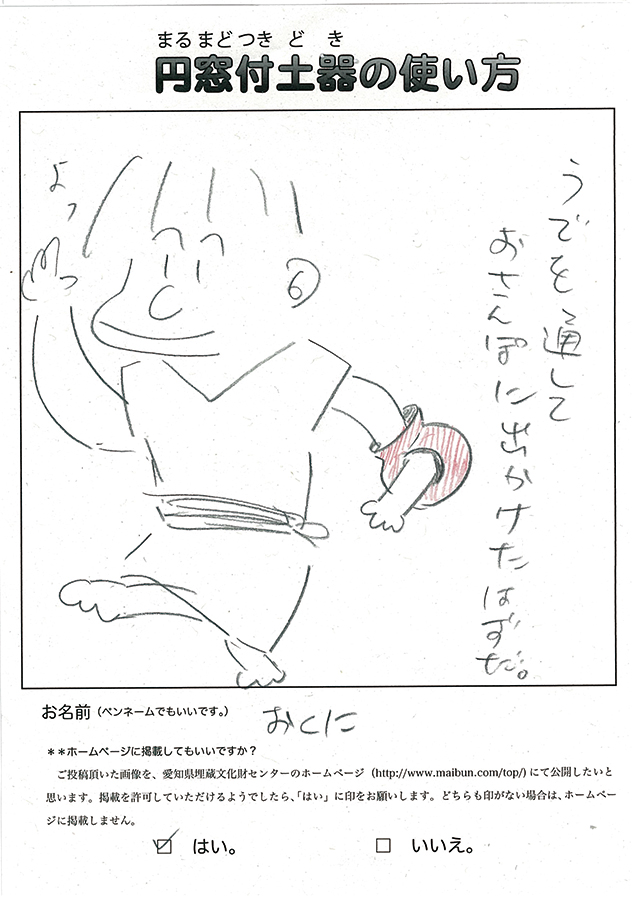 まるまどつきどき
円窓付土器の使い方
うでを通して
おさんぽに出かけたはずだ。
よっ
お名前（ペンネームでもいいです。）
おくに
＊＊ホームページに掲載してもいいですか？
ご投稿頂いた画像を、愛知県埋蔵文化財センターのホームページ（http://www.maibun.com/top/）にて公開したいと
思います。掲載を許可していただけるようでしたら、「はい」に印をお願いします。どちらも印がない場合は、ホームペー
ジに掲載しません。
☑ はい。 □ いいえ。